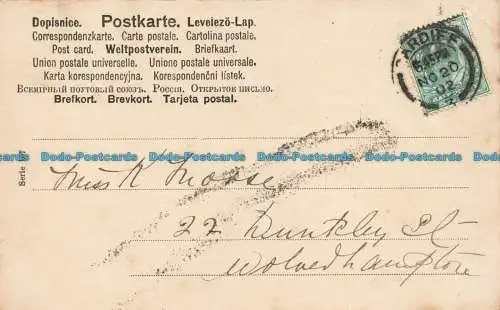 Dopisnice. Postkarte. Levelező-Lap.
Correspondenzkarte. Carte postale. Cartolina postale.
Post card. Weltpostverein. Briefkaart.
Union postale universelle. Unione postale universale.
Karta korespondencyjna. Korespondenční lístek.
Всемірный почтовый союзъ. Россія. Открытое письмо.
Brefkort. Brevkort. Tarjeta postal.
CARDIFF
NO 20
02
Serie
Dodo-Postcards Dodo-Postcards Dodo-Postcards Dodo-Postcards Dodo-Postcards
Miss K Morse
22 Dunkley St
Wolverhampton